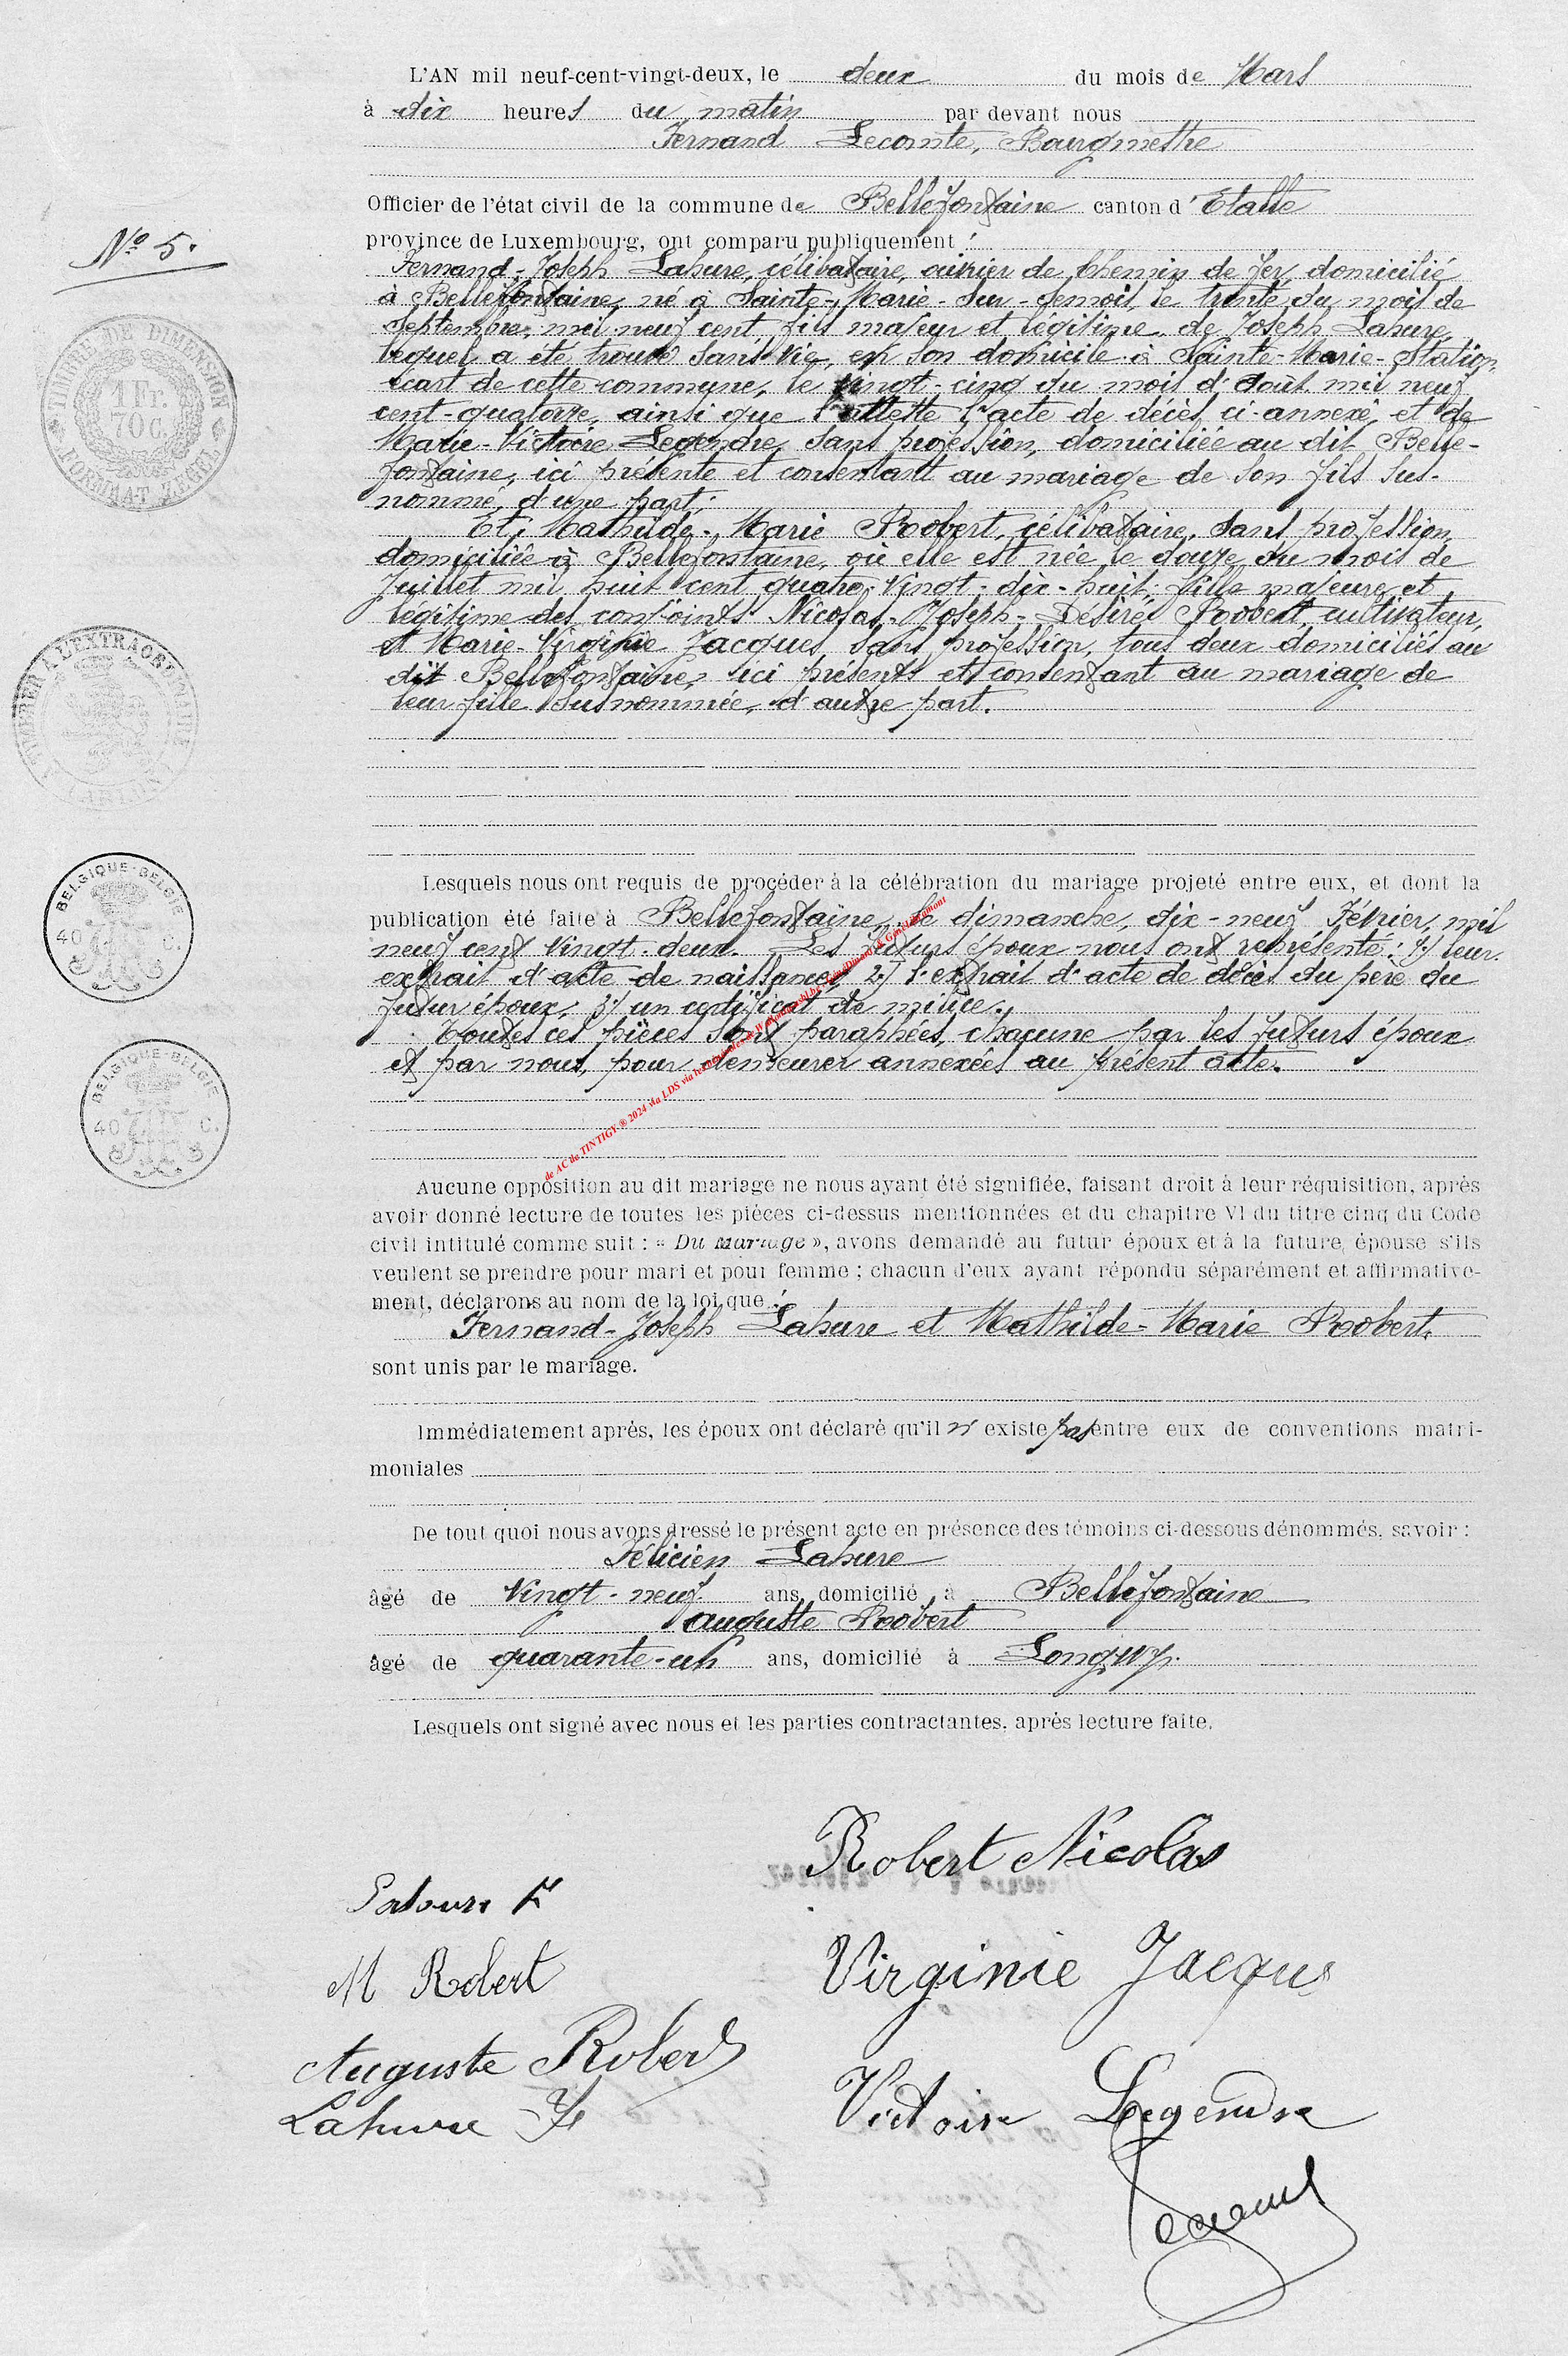 L'AN mil neuf-cent-vingt-deux, le deux du mois de Mars
à dix heures du matin par devant nous
Fernand Lecomte, Bourgmestre
Officier de l'état civil de la commune de Bellefontaine canton d'Etalle
N° 5.
province de Luxembourg, ont comparu publiquement :
Fernand-Joseph Lahure, célibataire, ouvrier de chemin de fer, domicilié
à Bellefontaine, né à Sainte-Marie-sur-Semois, le trente du mois de
Septembre mil neuf cent, fils majeur et légitime de Joseph Lahure,
lequel a été trouvé sans vie, en son domicile à Sainte-Marie-Station,
écart de cette commune, le vingt-cinq du mois d'août mil neuf
cent-quatorze, ainsi que l'atteste l'acte de décès ci-annexé et de
Marie-Victoire Legendre, sans profession, domiciliée au dit Belle-
fontaine, ici présente et consentant au mariage de son fils sus-
nommé, d'une part;
Et; Mathilde-Marie Robert, célibataire, sans profession,
domiciliée à Bellefontaine, où elle est née le douze du mois de
Juillet mil huit cent quatre-vingt-dix-huit, fille majeure et
légitime des conjoints Nicolas-Joseph-Désiré Robert, cultivateur,
et Marie-Virginie Jacques, sans profession, tous deux domiciliés au
dit Bellefontaine, ici présents et consentant au mariage de
leur fille susnommée, d'autre part.
TIMBRE DE DIMENSION
1 Fr.
70 C.
FORMAAT ZEGEL
A TIMBRER A L'EXTRAORDINAIRE
ARLON
BELGIQUE-BELGIE
40 C.
BELGIQUE-BELGIE
40 C.
Lesquels nous ont requis de procéder à la célébration du mariage projeté entre eux, et dont la
publication été faite à Bellefontaine, le dimanche, dix-neuf Février, mil
neuf cent vingt-deux. Les futurs époux nous ont représenté: 1°) leur
extrait d'acte de naissance; 2°) l'extrait d'acte de décès du père du
futur époux; 3°) un certificat de milice.
Toutes ces pièces sont paraphées, chacune par les futurs époux
et par nous, pour demeurer annexées au présent acte.
de AC de TINTIGY ® 2024 via LDS via
Aucune opposition au dit mariage ne nous ayant été signifiée, faisant droit à leur réquisition, après
avoir donné lecture de toutes les pièces ci-dessus mentionnées et du chapitre VI du titre cinq du Code
civil intitulé comme suit : « Du Mariage », avons demandé au futur époux et à la future épouse s'ils
veulent se prendre pour mari et pour femme ; chacun d'eux ayant répondu séparément et affirmative-
ment, déclarons au nom de la loi que :
Fernand-Joseph Lahure et Mathilde-Marie Robert.
sont unis par le mariage.
Immédiatement après, les époux ont déclaré qu'il n'existe pas entre eux de conventions matri-
moniales
De tout quoi nous avons dressé le présent acte en présence des témoins ci-dessous dénommés, savoir :
Félicien Lahure
âgé de vingt-neuf ans, domicilié à Bellefontaine
Auguste Robert
âgé de quarante-un ans, domicilié à Longwy.
Lesquels ont signé avec nous et les parties contractantes, après lecture faite.
Robert Nicolas
Lahure F
Virginie Jacques
M Robert
Auguste Robert
Victoire Legendre
Lahure F